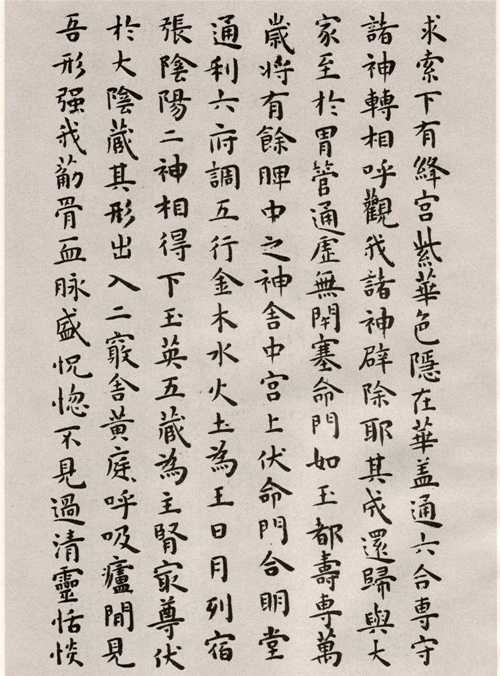 求索下有絳宮紫華色隱在華蓋通六合專守
諸神轉相呼觀我諸神辟除耶其成還歸與大
家至於胃管通虛無閉塞命門如玉都壽專萬
歲将有餘脾中之神舍中宮上伏命門合明堂
通利六府調五行金木水火土為王日月列宿
張陰陽二神相得下玉英五藏為主腎寂尊伏
於大陰藏其形出入二竅舍黃庭呼吸廬閒見
吾形强我筋骨血脉盛怳惚不見過清靈恬惔